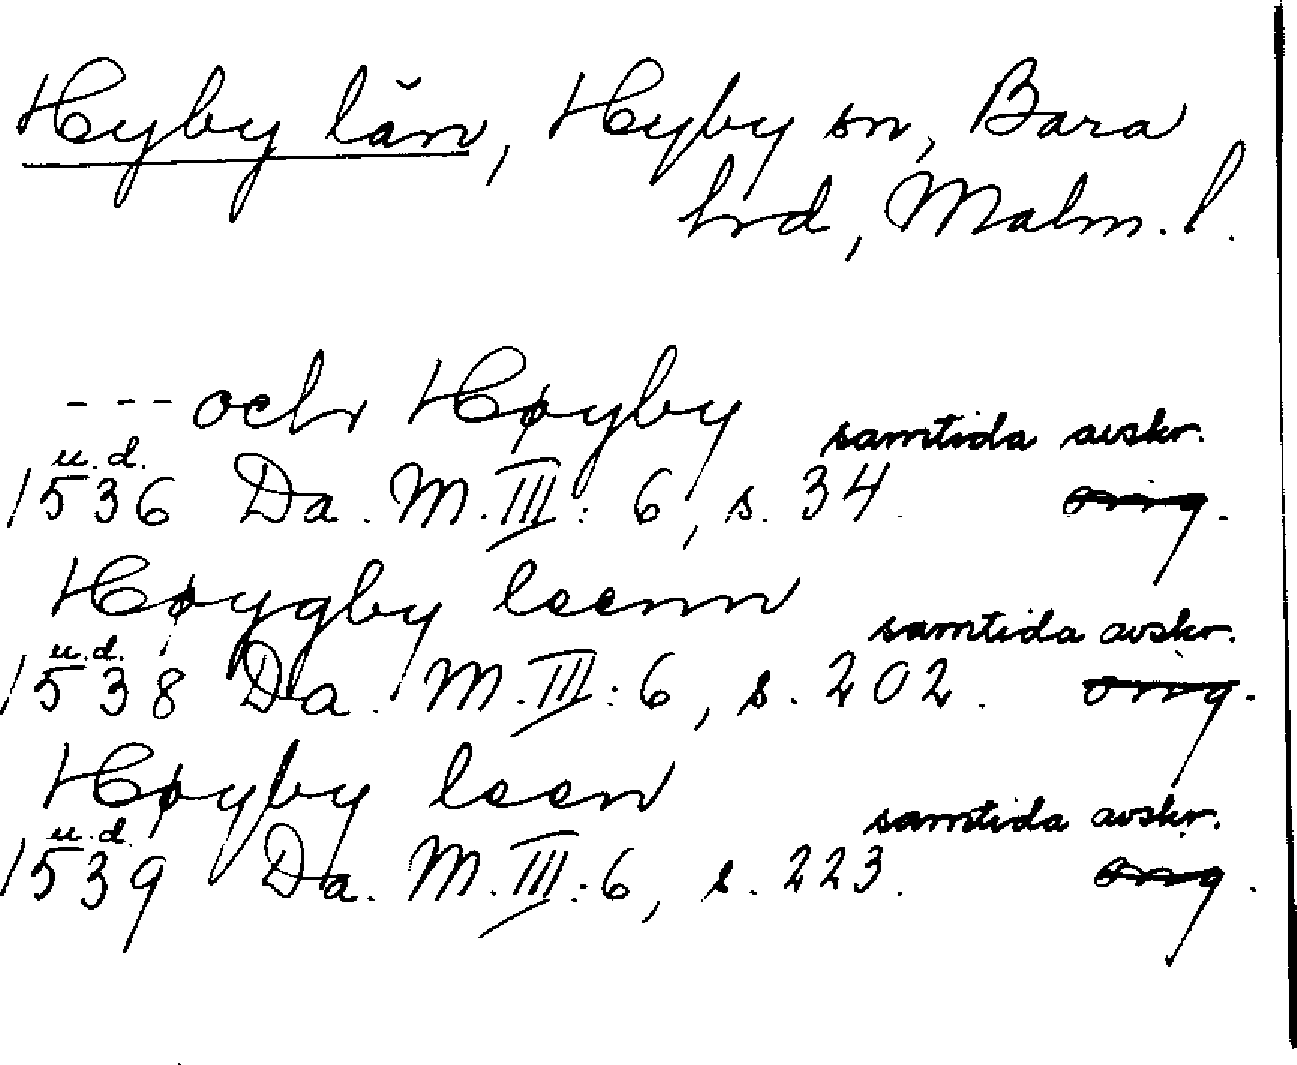 Hyby län, Hyby sn, Bara
hrd, Malm. l.
--- och Høyby
samtida avskr.
u.d.
1536 Da. M. III: 6, s. 34. orig.
Høygby leenn
samtida avskr.
u.d.
1538 Da. M. III: 6, s. 202. orig.
Høyby leen
samtida avskr.
u.d.
1539 Da. M. III: 6, s. 223. orig.